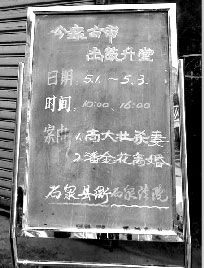 今在古市
出徽升堂
日期：5.1.～5.3.
时间：10:00、16:00
案由：1.高大壮杀妻
2.潘金花离婚
石泉县衙石泉法院